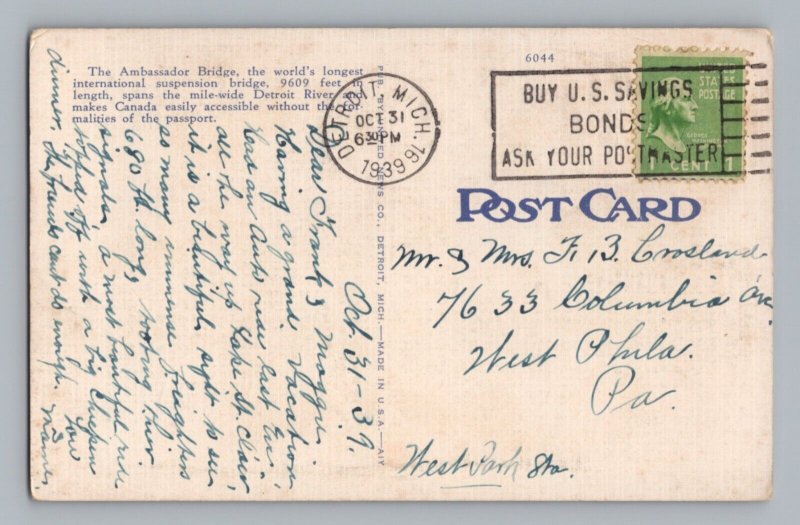 The Ambassador Bridge, the world's longest
international suspension bridge, 9609 feet in
length, spans the mile-wide Detroit River and
makes Canada easily accessible without the for-
malities of the passport.
6044
DETROIT, MICH. 16
OCT 31
6 30 PM
1939
BUY U.S. SAVINGS
BONDS
ASK YOUR POSTMASTER
UNITED
STATES
POSTAGE
GEORGE
WASHINGTON
1 CENT 1
POST CARD
PUB. BY UNITED NEWS CO., DETROIT, MICH.—MADE IN U.S.A.—AIY
Oct. 31-39.
Dear Frank & Maggie
Having a grand Vacation
Had an auto ride last Eve.
all the way up Lake St. Clair,
it is a beautiful sight to see
so many immense freighters
680 ft. long, tooting their
signals, a most beautiful ride
topped off with a big Chicken
dinner. The friends cant do enough.
Love
Mr. & Mrs. F. B. Crosland
7633 Columbia Ave
West Phila.
Pa.
West Park Sta.